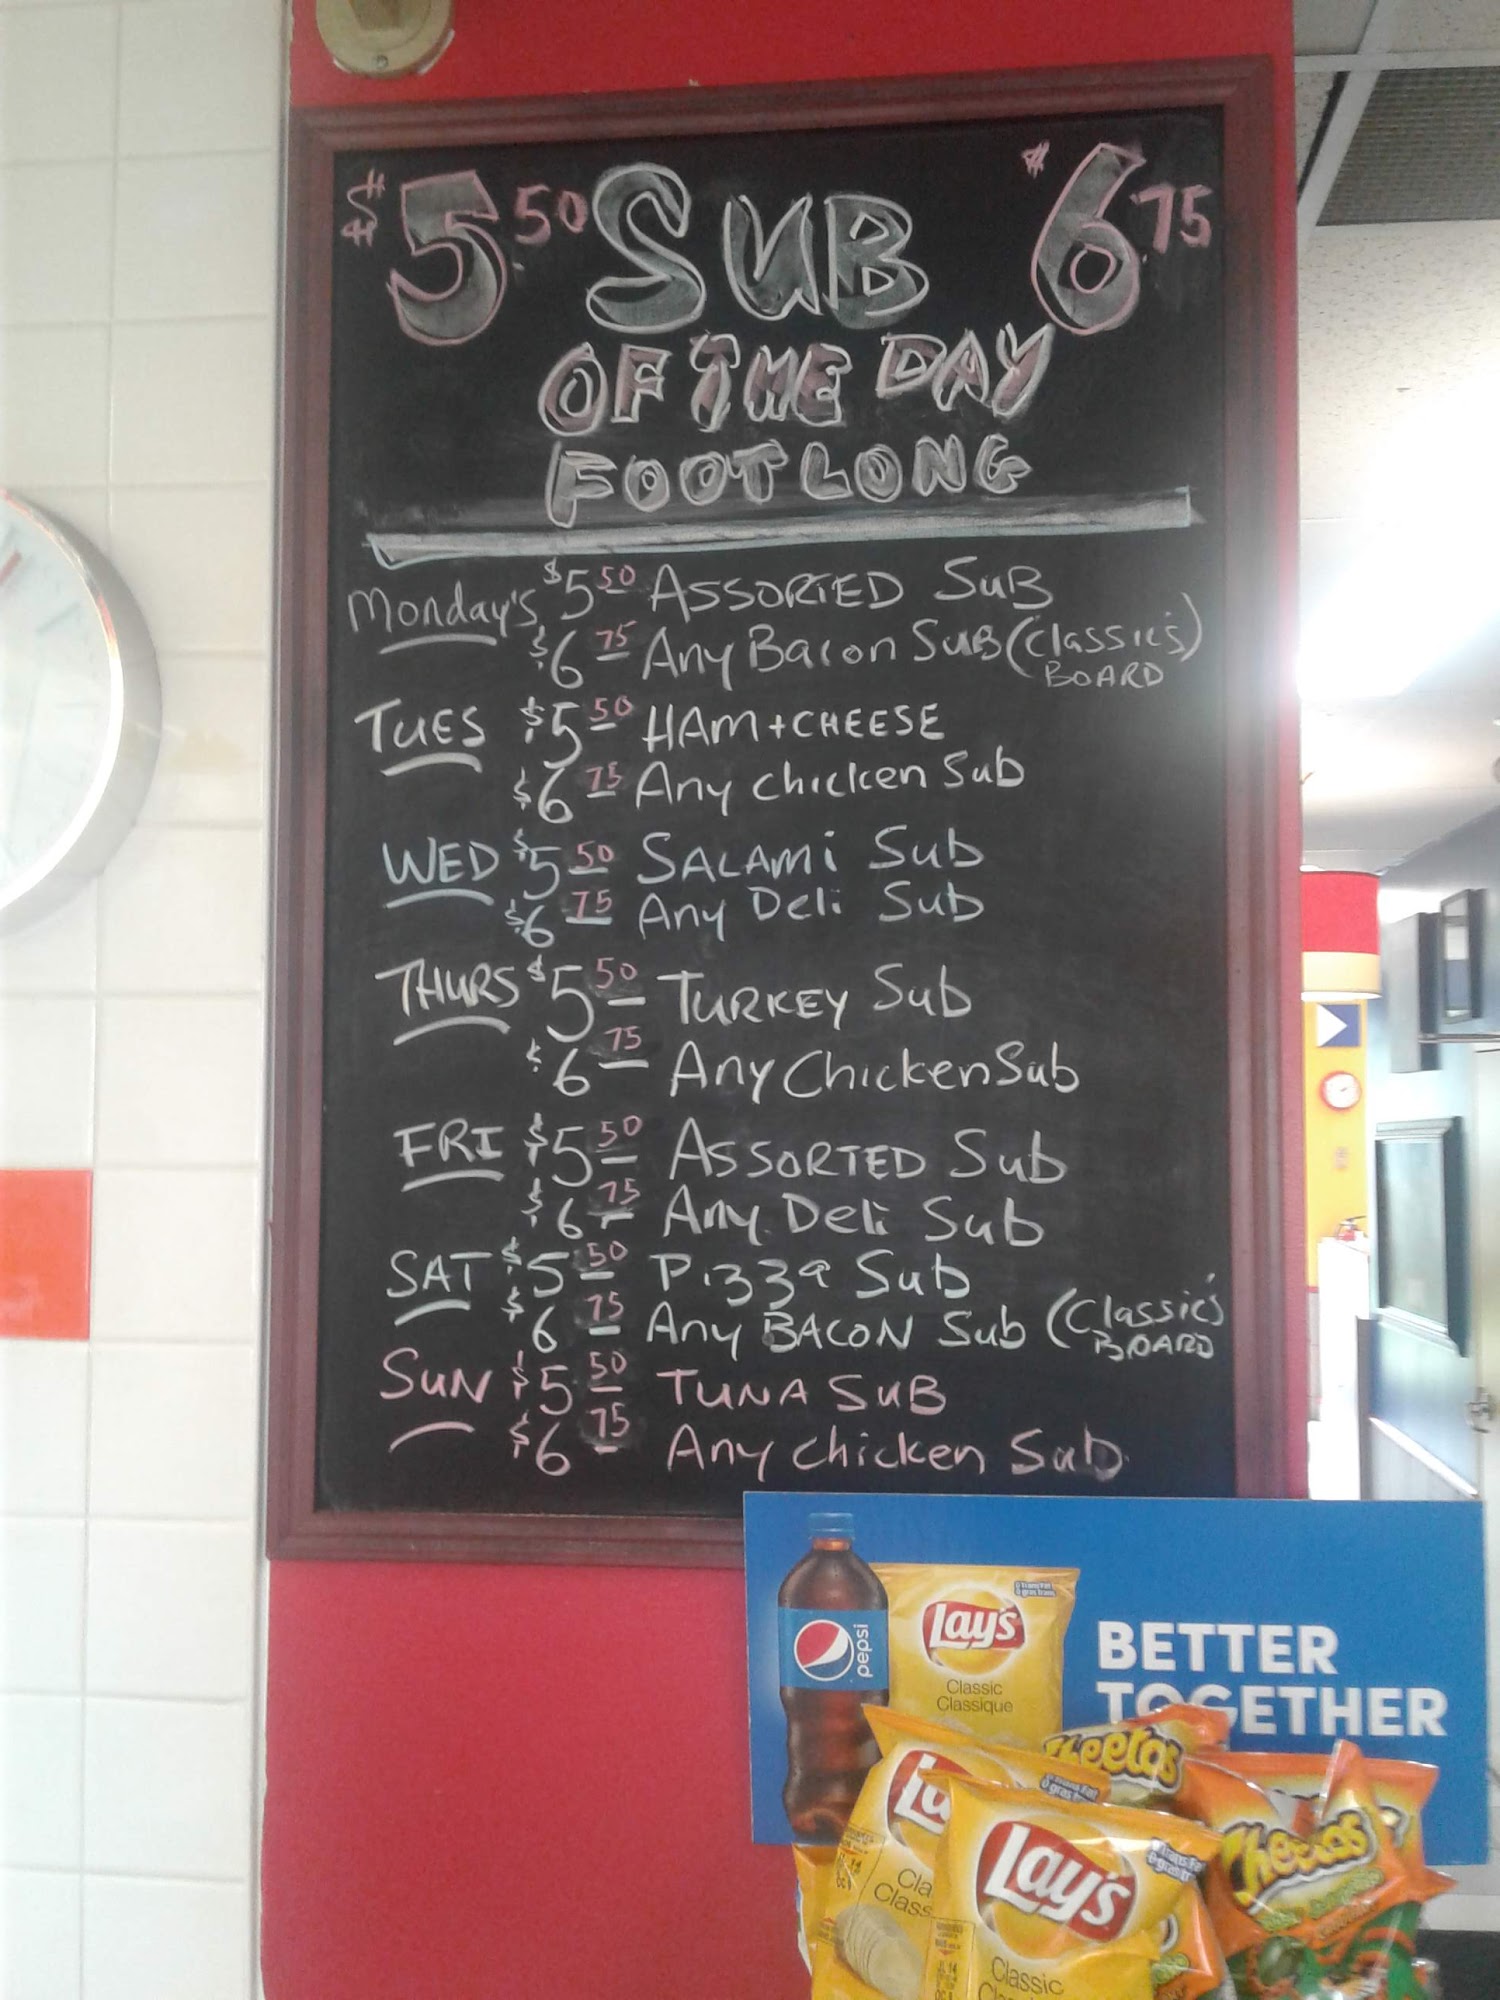 $5.50 SUB $6.75
OF THE DAY
FOOT LONG
Monday's $5.50 ASSORTED SUB
$6.75 Any Bacon SUB (Classic's)
BOARD
TUES $5.50 HAM + CHEESE
$6.75 Any chicken Sub
WED $5.50 SALAMi Sub
$6.75 Any Deli Sub
THURS $5.50 TURKEY Sub
$6.75 Any Chicken Sub
FRI $5.50 ASSORTED Sub
$6.75 Any Deli Sub
SAT $5.50 Pizza Sub
$6.75 Any BACON Sub (Classic's
BOARD
SUN $5.50 TUNA SUB
$6.75 Any chicken Sub
pepsi
Lay's
Classic
Classique
BETTER
TOGETHER
Cheetos
Lay's
Classic
Cheetos